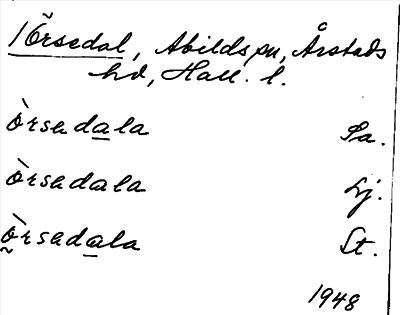 /Örsedal, Abilds sn, Årstads
hd, Hall. l.
òrsadala Sa.
òrsadala Lj.
òrsadala St.
1948